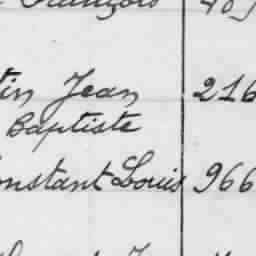 François
tin Jean 216
Baptiste
onstant Louis 966